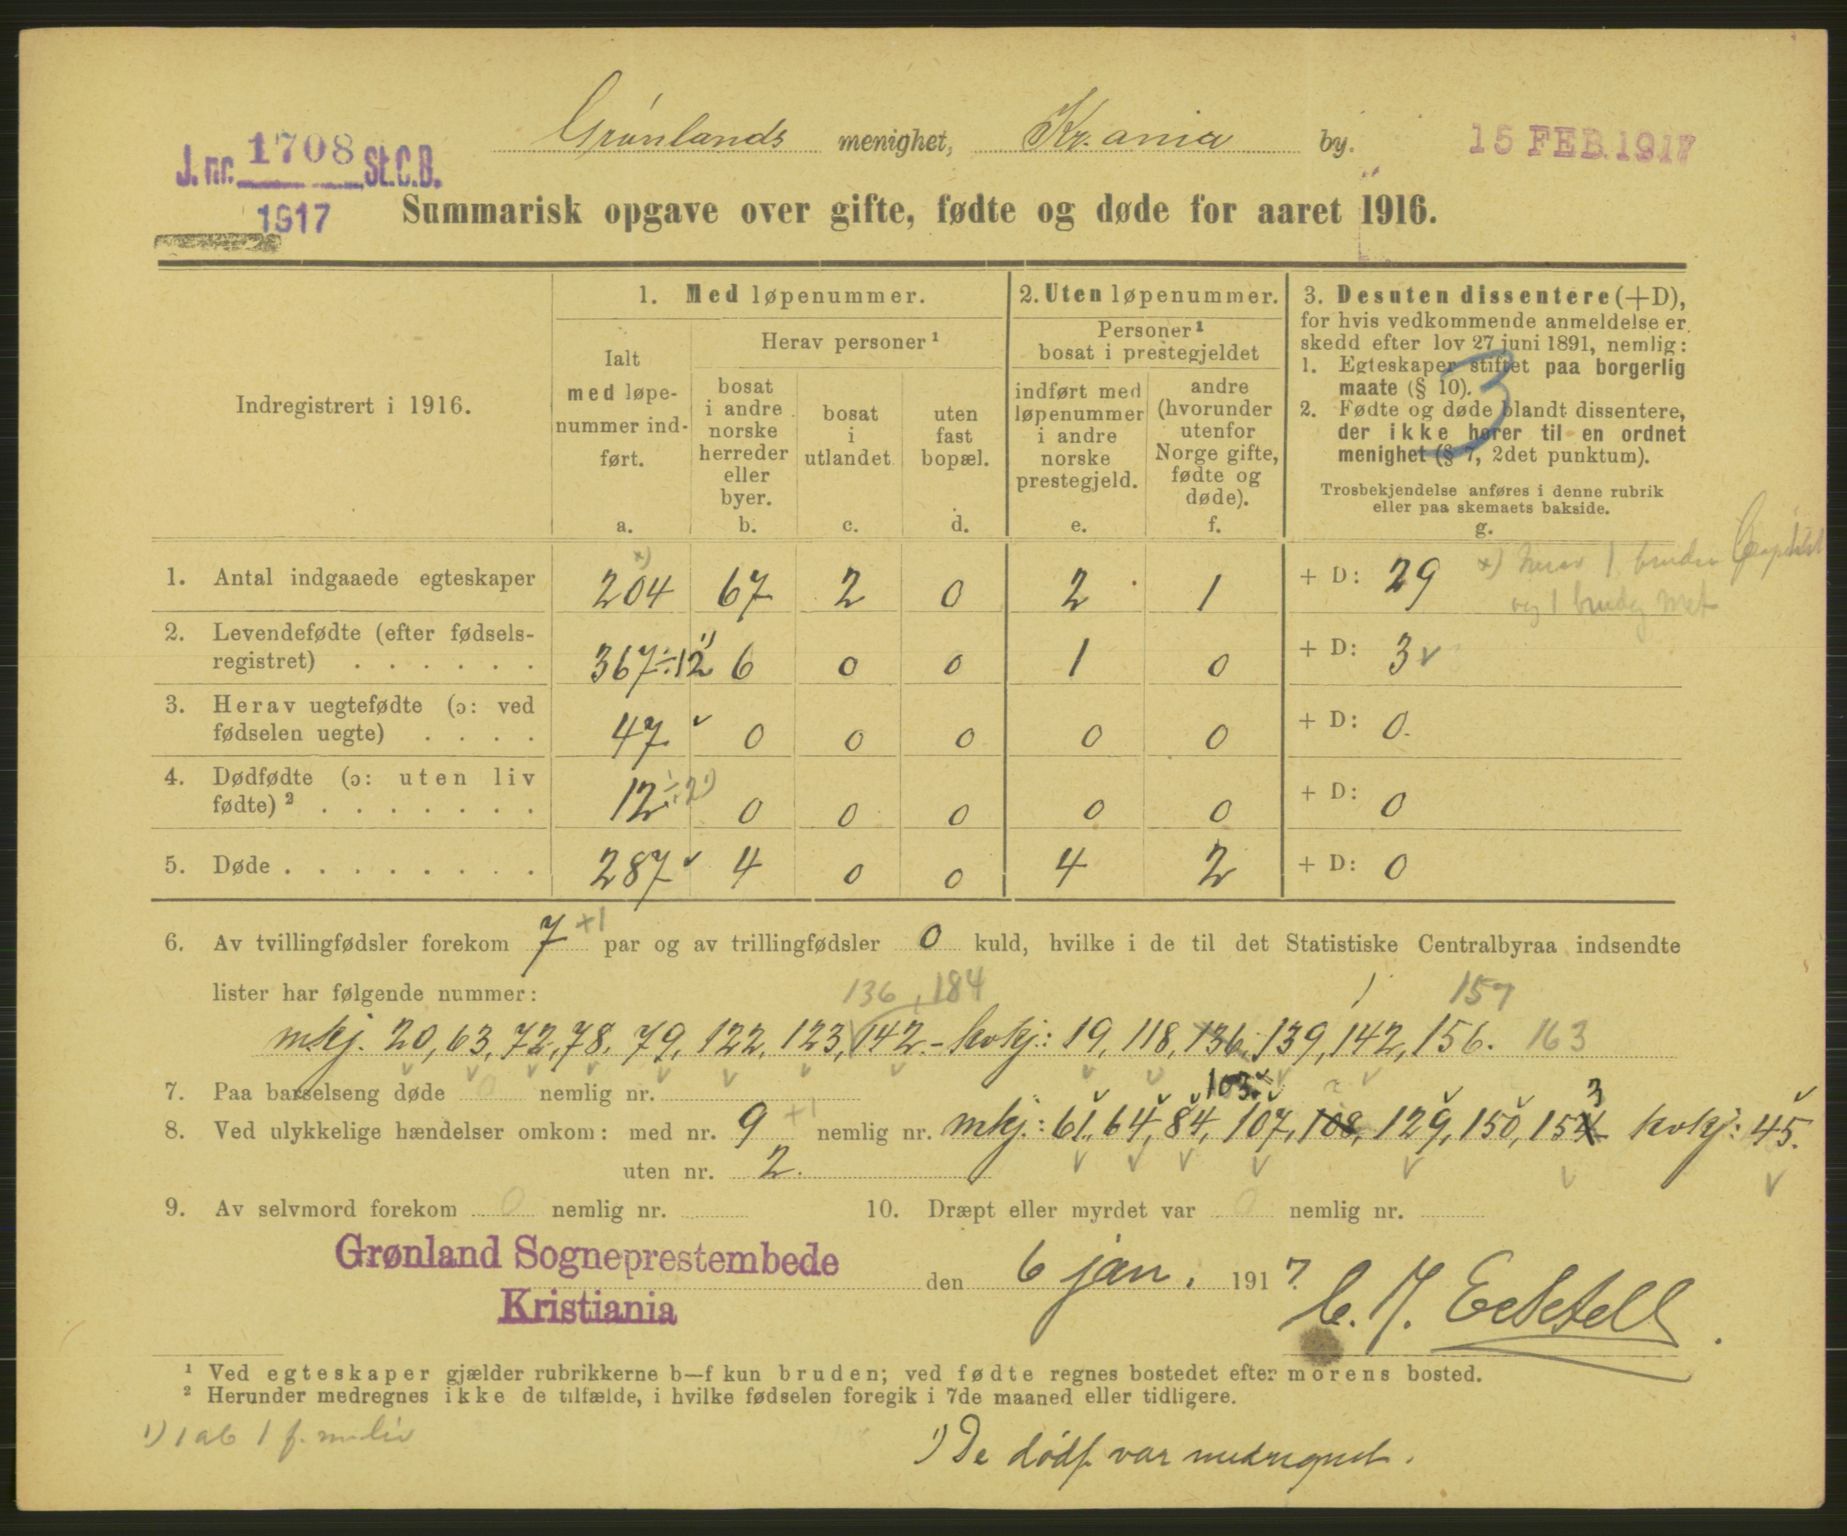 Grønlands menighet, Kr.ania by.
15 FEB. 1917
J. nr. 1708 St. C. B.
1917
Summarisk opgave over gifte, fødte og døde for aaret 1916.
Indregistrert i 1916.
1. Med løpenummer.
Ialt
med løpe-
nummer ind-
ført.
a.
Herav personer ¹
bosat
i andre
norske
herreder
eller
byer.
b.
bosat
i
utlandet
c.
uten
fast
bopæl.
d.
2. Uten løpenummer.
Personer ¹
bosat i prestegjeldet
indført med
løpenummer
i andre
norske
prestegjeld.
e.
andre
(hvorunder
utenfor
Norge gifte,
fødte og
døde).
f.
3. Desuten dissentere (+D),
for hvis vedkommende anmeldelse er
skedd efter lov 27 juni 1891, nemlig:
1. Egteskaper stiftet paa borgerlig
maate (§ 10).
2. Fødte og døde blandt dissentere,
der ikke hører til en ordnet
menighet (§ 7, 2det punktum).
3
Trosbekjendelse anføres i denne rubrik
eller paa skemaets bakside.
g.
1. Antal indgaaede egteskaper 204 x) 67 2 0 2 1 + D: 29 x) herav 1
og 1
2. Levendefødte (efter fødsels-
registret) . . . . . . 367 ÷ 12 ¹) 6 0 0 1 0 + D: 3 ✓
3. Herav uegtefødte (ɔ: ved
fødselen uegte) . . . . 47 ✓ 0 0 0 0 0 + D: 0.
4. Dødfødte (ɔ: uten liv
fødte) ² . . . . . . . 12 ÷ 2 ¹) 0 0 0 0 0 + D: 0
5. Døde . . . . . . . . 287 ✓ 4 0 0 4 2 + D: 0
6. Av tvillingfødsler forekom 7 +1 par og av trillingfødsler 0 kuld, hvilke i de til det Statistiske Centralbyraa indsendte
lister har følgende nummer:
136, 184 157
mkj. 20, 63, 72, 78, 79, 122, 123, 142. – kvkj.: 19, 118, 136, 139, 142, 156. 163
7. Paa barselseng døde 0 nemlig nr.
103.
8. Ved ulykkelige hændelser omkom: med nr. 9 +1 nemlig nr. mkj.: 61, 64, 84, 107, 108, 129, 150, 154 3 kvkj: 45.
uten nr. 2.
9. Av selvmord forekom 0 nemlig nr.
10. Dræpt eller myrdet var 0 nemlig nr.
Grønland Sogneprestembede
Kristiania
den 6 jan. 1917.
¹ Ved egteskaper gjælder rubrikkerne b–f kun bruden; ved fødte regnes bostedet efter morens bosted.
² Herunder medregnes ikke de tilfælde, i hvilke fødselen foregik i 7de maaned eller tidligere.
¹) De dødf. var medregnet.